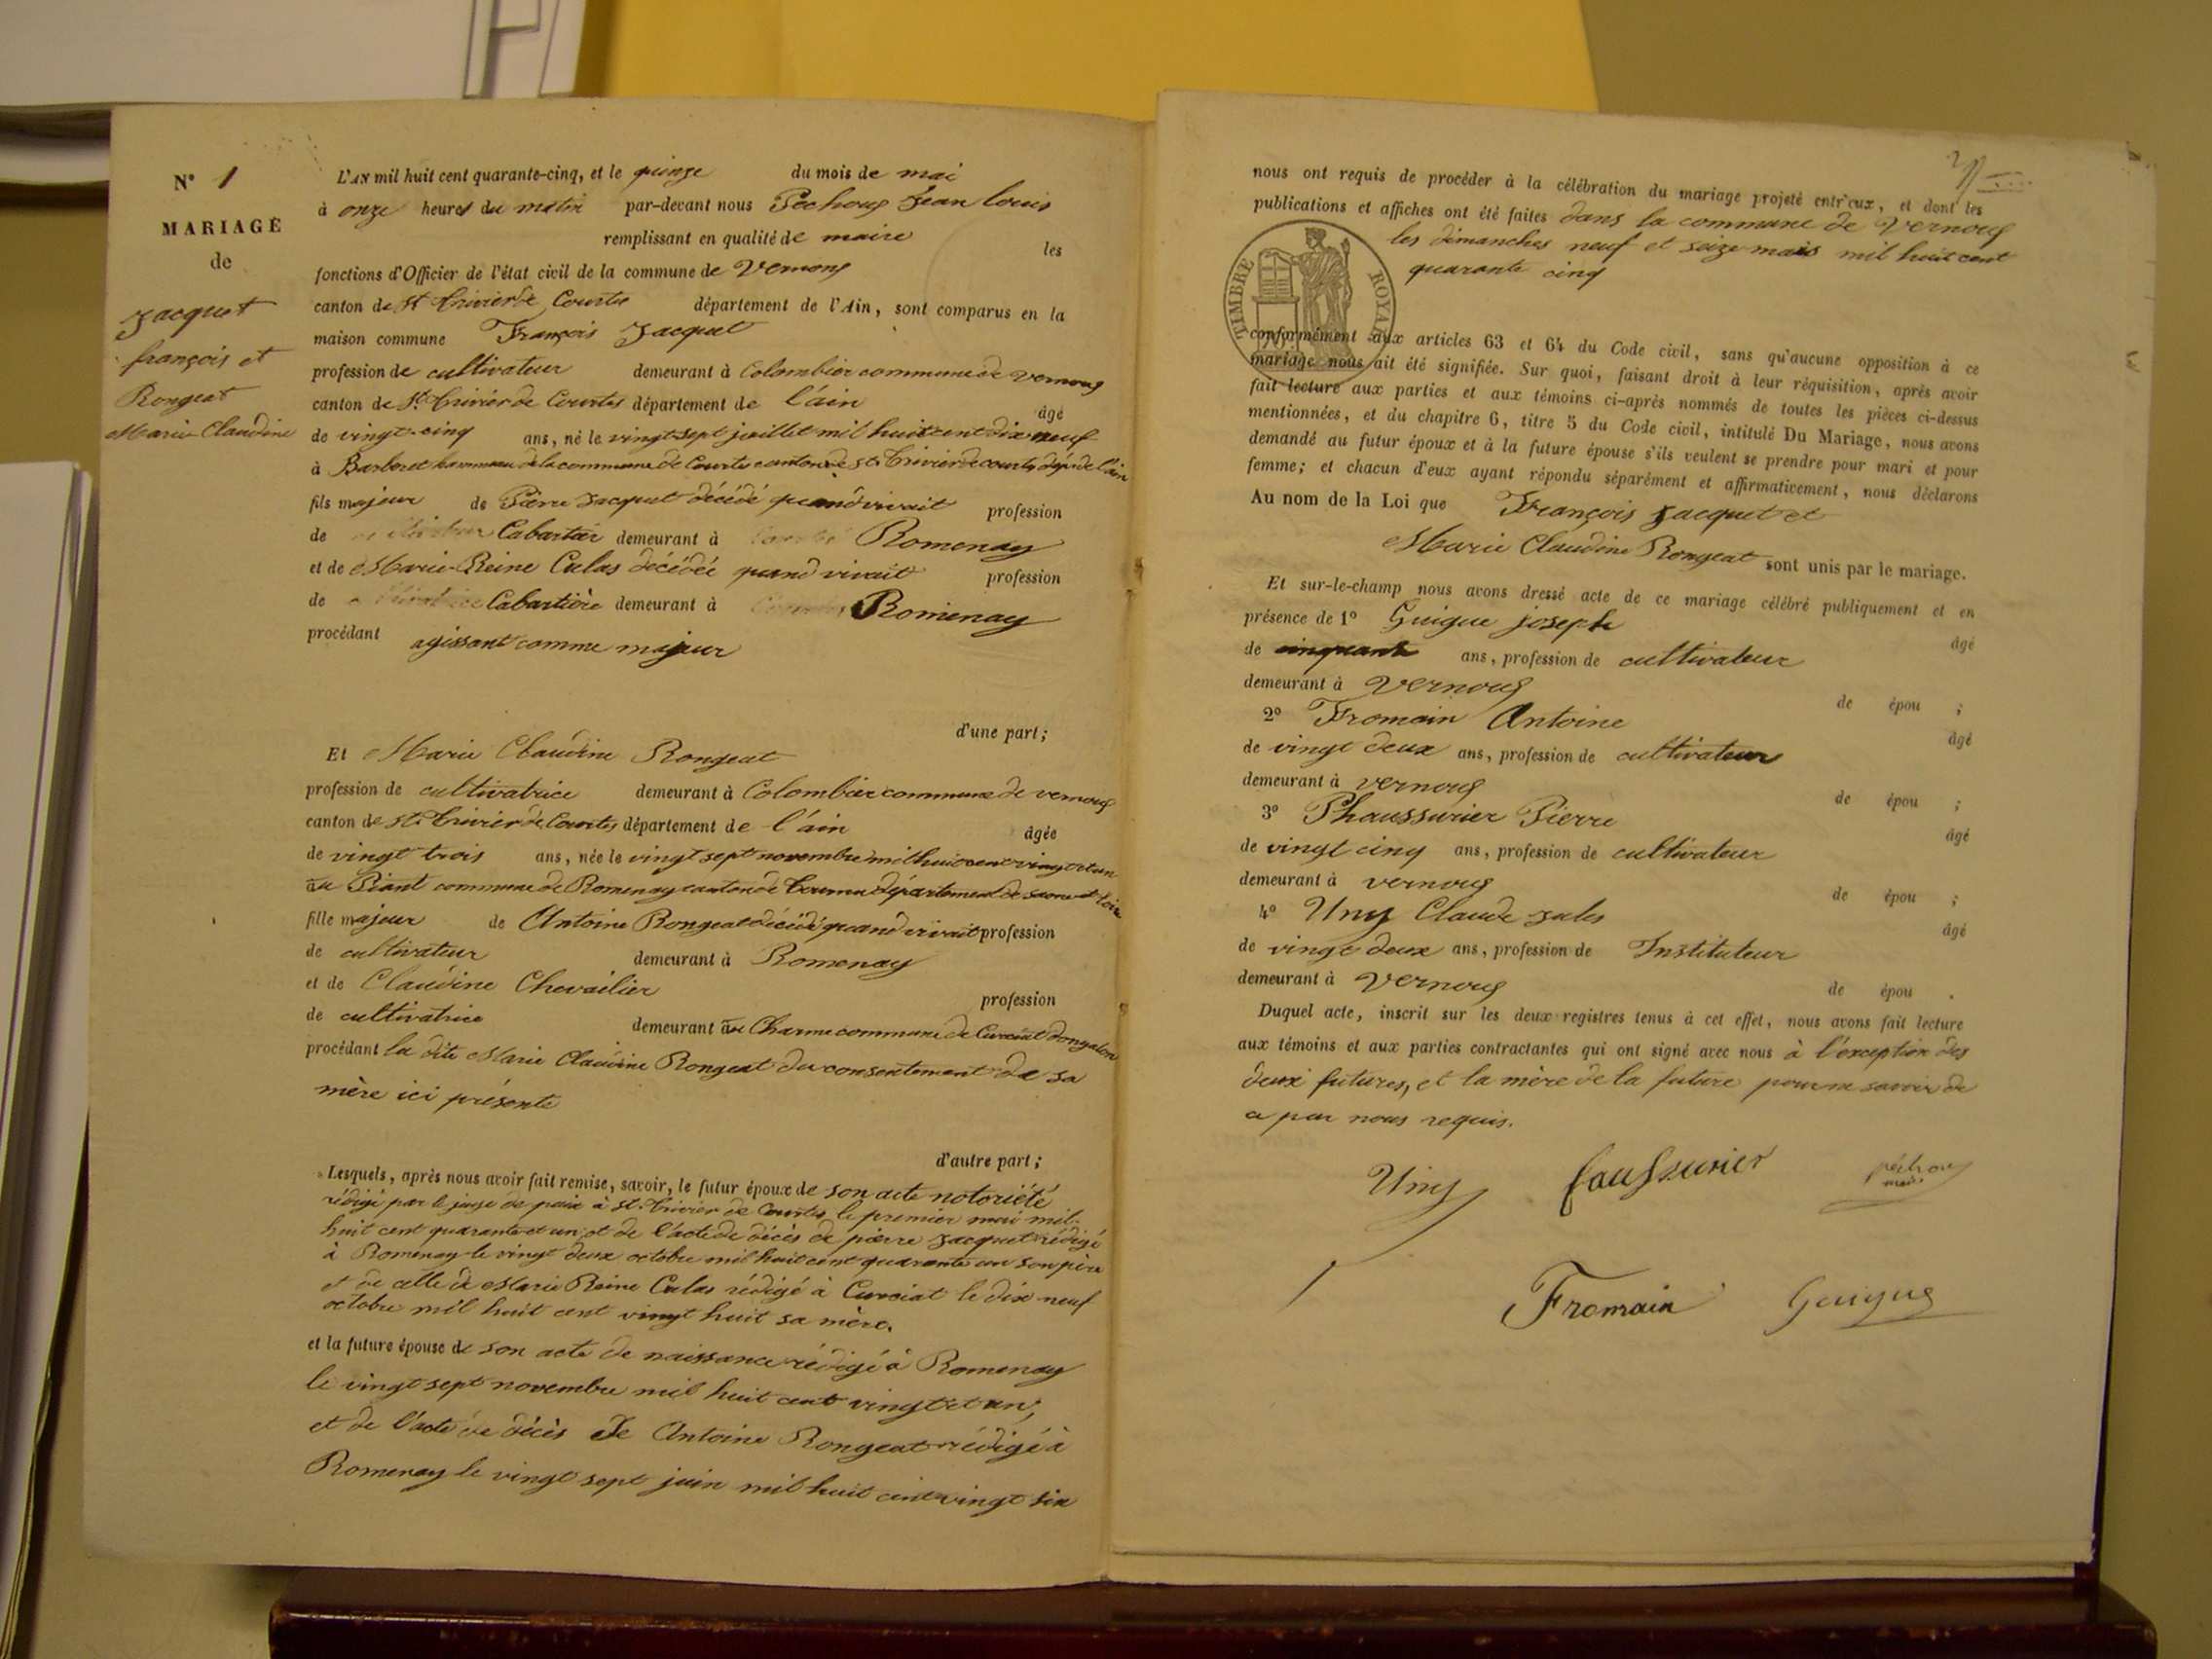 N° 1
MARIAGE
de
Jacquet
françois et
Rongeat
Marie Claudine
L'AN mil huit cent quarante-cinq, et le quinze du mois de mai
à onze heures du matin par-devant nous Pochoug Jean louis
remplissant en qualité de maire les
fonctions d'Officier de l'état civil de la commune de Vernoug
canton de St Trivier de Courtes département de l'Ain, sont comparus en la
maison commune François Jacquet
profession de cultivateur demeurant à Colombier commune de vernoug
canton de St. Trivier de Courtes département de l'ain âgé
de vingt-cinq ans, né le vingt sept juillet mil huit cent dix neuf
à Barberet hammeau de la commune de Courtes canton de St. Trivier de courtes dép. de l'ain
fils majeur de Pierre Jacquet décédé quand vivait profession
de Cabartier demeurant à Romenay
et de Marie-Reine Culas décédée quand vivait profession
de Cabartière demeurant à Romenay
procédant agissant comme majeur
d'une part;
Et Marie Claudine Rongeat
profession de cultivatrice demeurant à Colombier commune de vernoug
canton de St. Trivier de Courtes département de l'ain âgée
de vingt trois ans, née le vingt sept novembre mil huit cent vingt et un
au Piant commune de Romenay canton de Tournu département de saone et loire
fille majeur de Antoine Rongeat décédé quand vivait profession
de cultivateur demeurant à Romenay
et de Claudine Chevailier profession
de cultivatrice demeurant au Charme commune de Curciat dongalon
procédant la dite Marie Claudine Rongeat du consentement de sa
mère ici présente
d'autre part;
Lesquels, après nous avoir fait remise, savoir, le futur époux de son acte notoriété
rédigé par le juge de paix à St. Trivier de Courtes le premier mai mil
huit cent quarante et un; et de l'acte de décès de pierre Jacquet rédigé
à Romenay le vingt deux octobre mil huit cent quarante un son père
et de celle de Marie Reine Culas rédigé à Curciat le dix neuf
octobre mil huit cent vingt huit sa mère.
et la future épouse de son acte de naissance rédigé à Romenay
le vingt sept novembre mil huit cent vingt et un;
et de l'acte de décès de Antoine Rongeat rédigé à
Romenay le vingt sept juin mil huit cent vingt six
nous ont requis de procéder à la célébration du mariage projeté entr'eux, et dont les
publications et affiches ont été faites dans la commune de Vernoug
les dimanches neuf et seize mais mil huit cent
quarante cinq
TIMBRE ROYAL
conformément aux articles 63 et 64 du Code civil, sans qu'aucune opposition à ce
mariage nous ait été signifiée. Sur quoi, faisant droit à leur réquisition, après avoir
fait lecture aux parties et aux témoins ci-après nommés de toutes les pièces ci-dessus
mentionnées, et du chapitre 6, titre 5 du Code civil, intitulé Du Mariage, nous avons
demandé au futur époux et à la future épouse s'ils veulent se prendre pour mari et pour
femme; et chacun d'eux ayant répondu séparément et affirmativement, nous déclarons
Au nom de la Loi que François Jacquet et
Marie Claudine Rongeat sont unis par le mariage.
Et sur-le-champ nous avons dressé acte de ce mariage célébré publiquement et en
présence de 1° Guigue joseph âgé
de cinquante ans, profession de cultivateur
demeurant à Vernoug de épou ;
2° Fromain Antoine âgé
de vingt deux ans, profession de cultivateur
demeurant à vernoug de épou ;
3° Phaussurier Pierre âgé
de vingt cinq ans, profession de cultivateur
demeurant à vernoug de épou ;
4° Uny Claude Jules âgé
de vingt deux ans, profession de Instituteur
demeurant à Vernoug de épou .
Duquel acte, inscrit sur les deux registres tenus à cet effet, nous avons fait lecture
aux témoins et aux parties contractantes qui ont signé avec nous à l'exception des
deux futures, et la mère de la future pour ne savoir de
ce par nous requis.
Uny fauſsurier péchou
maire
Fromain Guigue